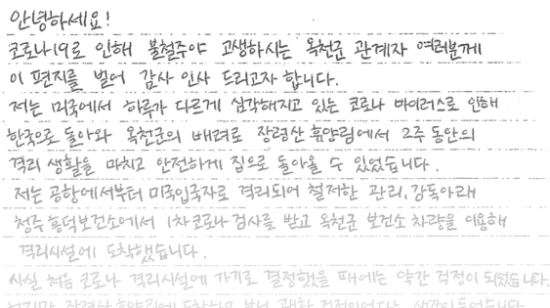 안녕하세요!
코로나19로 인해 불철주야 고생하시는 옥천군 관계자 여러분께
이 편지를 빌어 감사 인사 드리고자 합니다.
저는 미국에서 하루가 다르게 심각해지고 있는 코로나 바이러스로 인해
한국으로 돌아와 옥천군의 배려로 장령산 휴양림에서 2주 동안의
격리 생활을 마치고 안전하게 집으로 돌아올 수 있었습니다.
저는 공항에서부터 미국입국자로 격리되어 철저한 관리, 감독아래
청주 흥덕보건소에서 1차코로나 검사를 받고 옥천군 보건소 차량을 이용해
격리시설에 도착했습니다.
사실 처음 코로나 격리시설에 가기로 결정했을 때에는 약간 걱정이 되었습니다
장령산 휴양림에 도착하고 보니 괜한 걱정이었다는 생각이 들었습니다